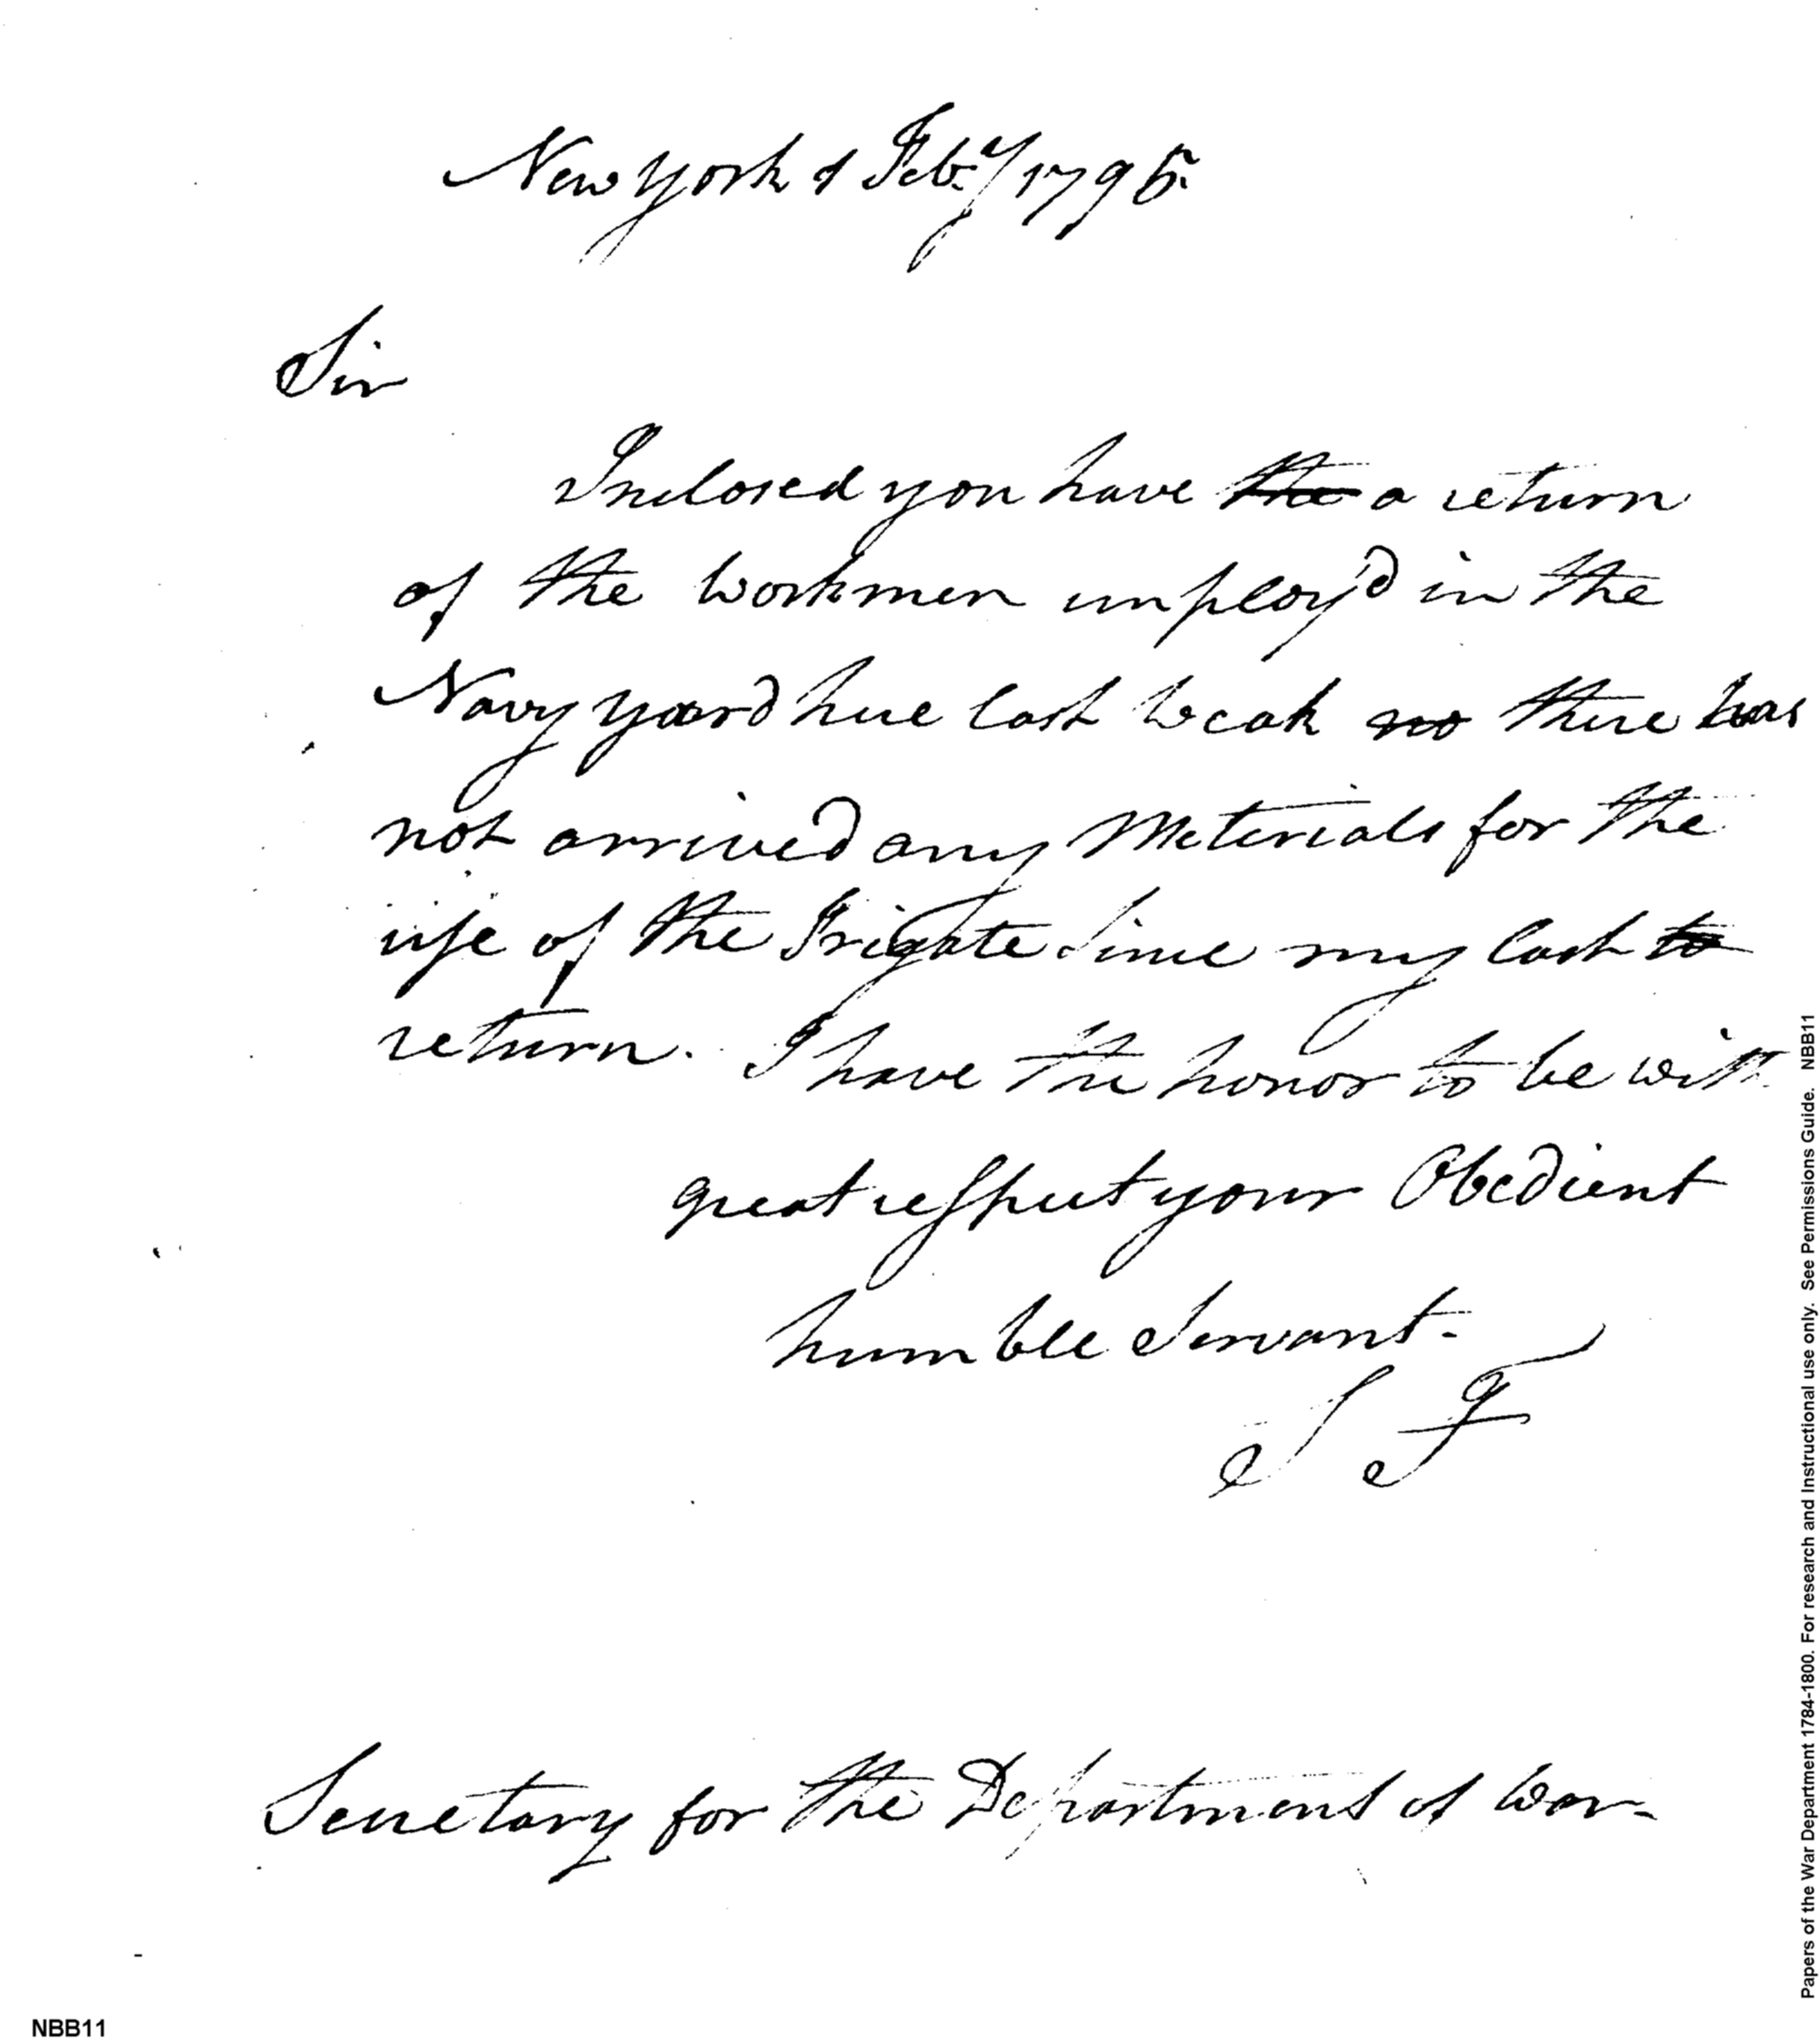 New York 1 Feb.y 1795.
Sir
Inclosed you have the a return
of the workmen imploy'd in the
Navy yard here last weeak no there has
not arrived any Meterials for the
use of the Frigate since my last to
return. I have the honor to be with
great respect your Obedient
humble Servant.
S F
Secretary for the Department of War
NBB11
Papers of the War Department 1784-1800. For research and Instructional use only. See Permissions Guide. NBB11